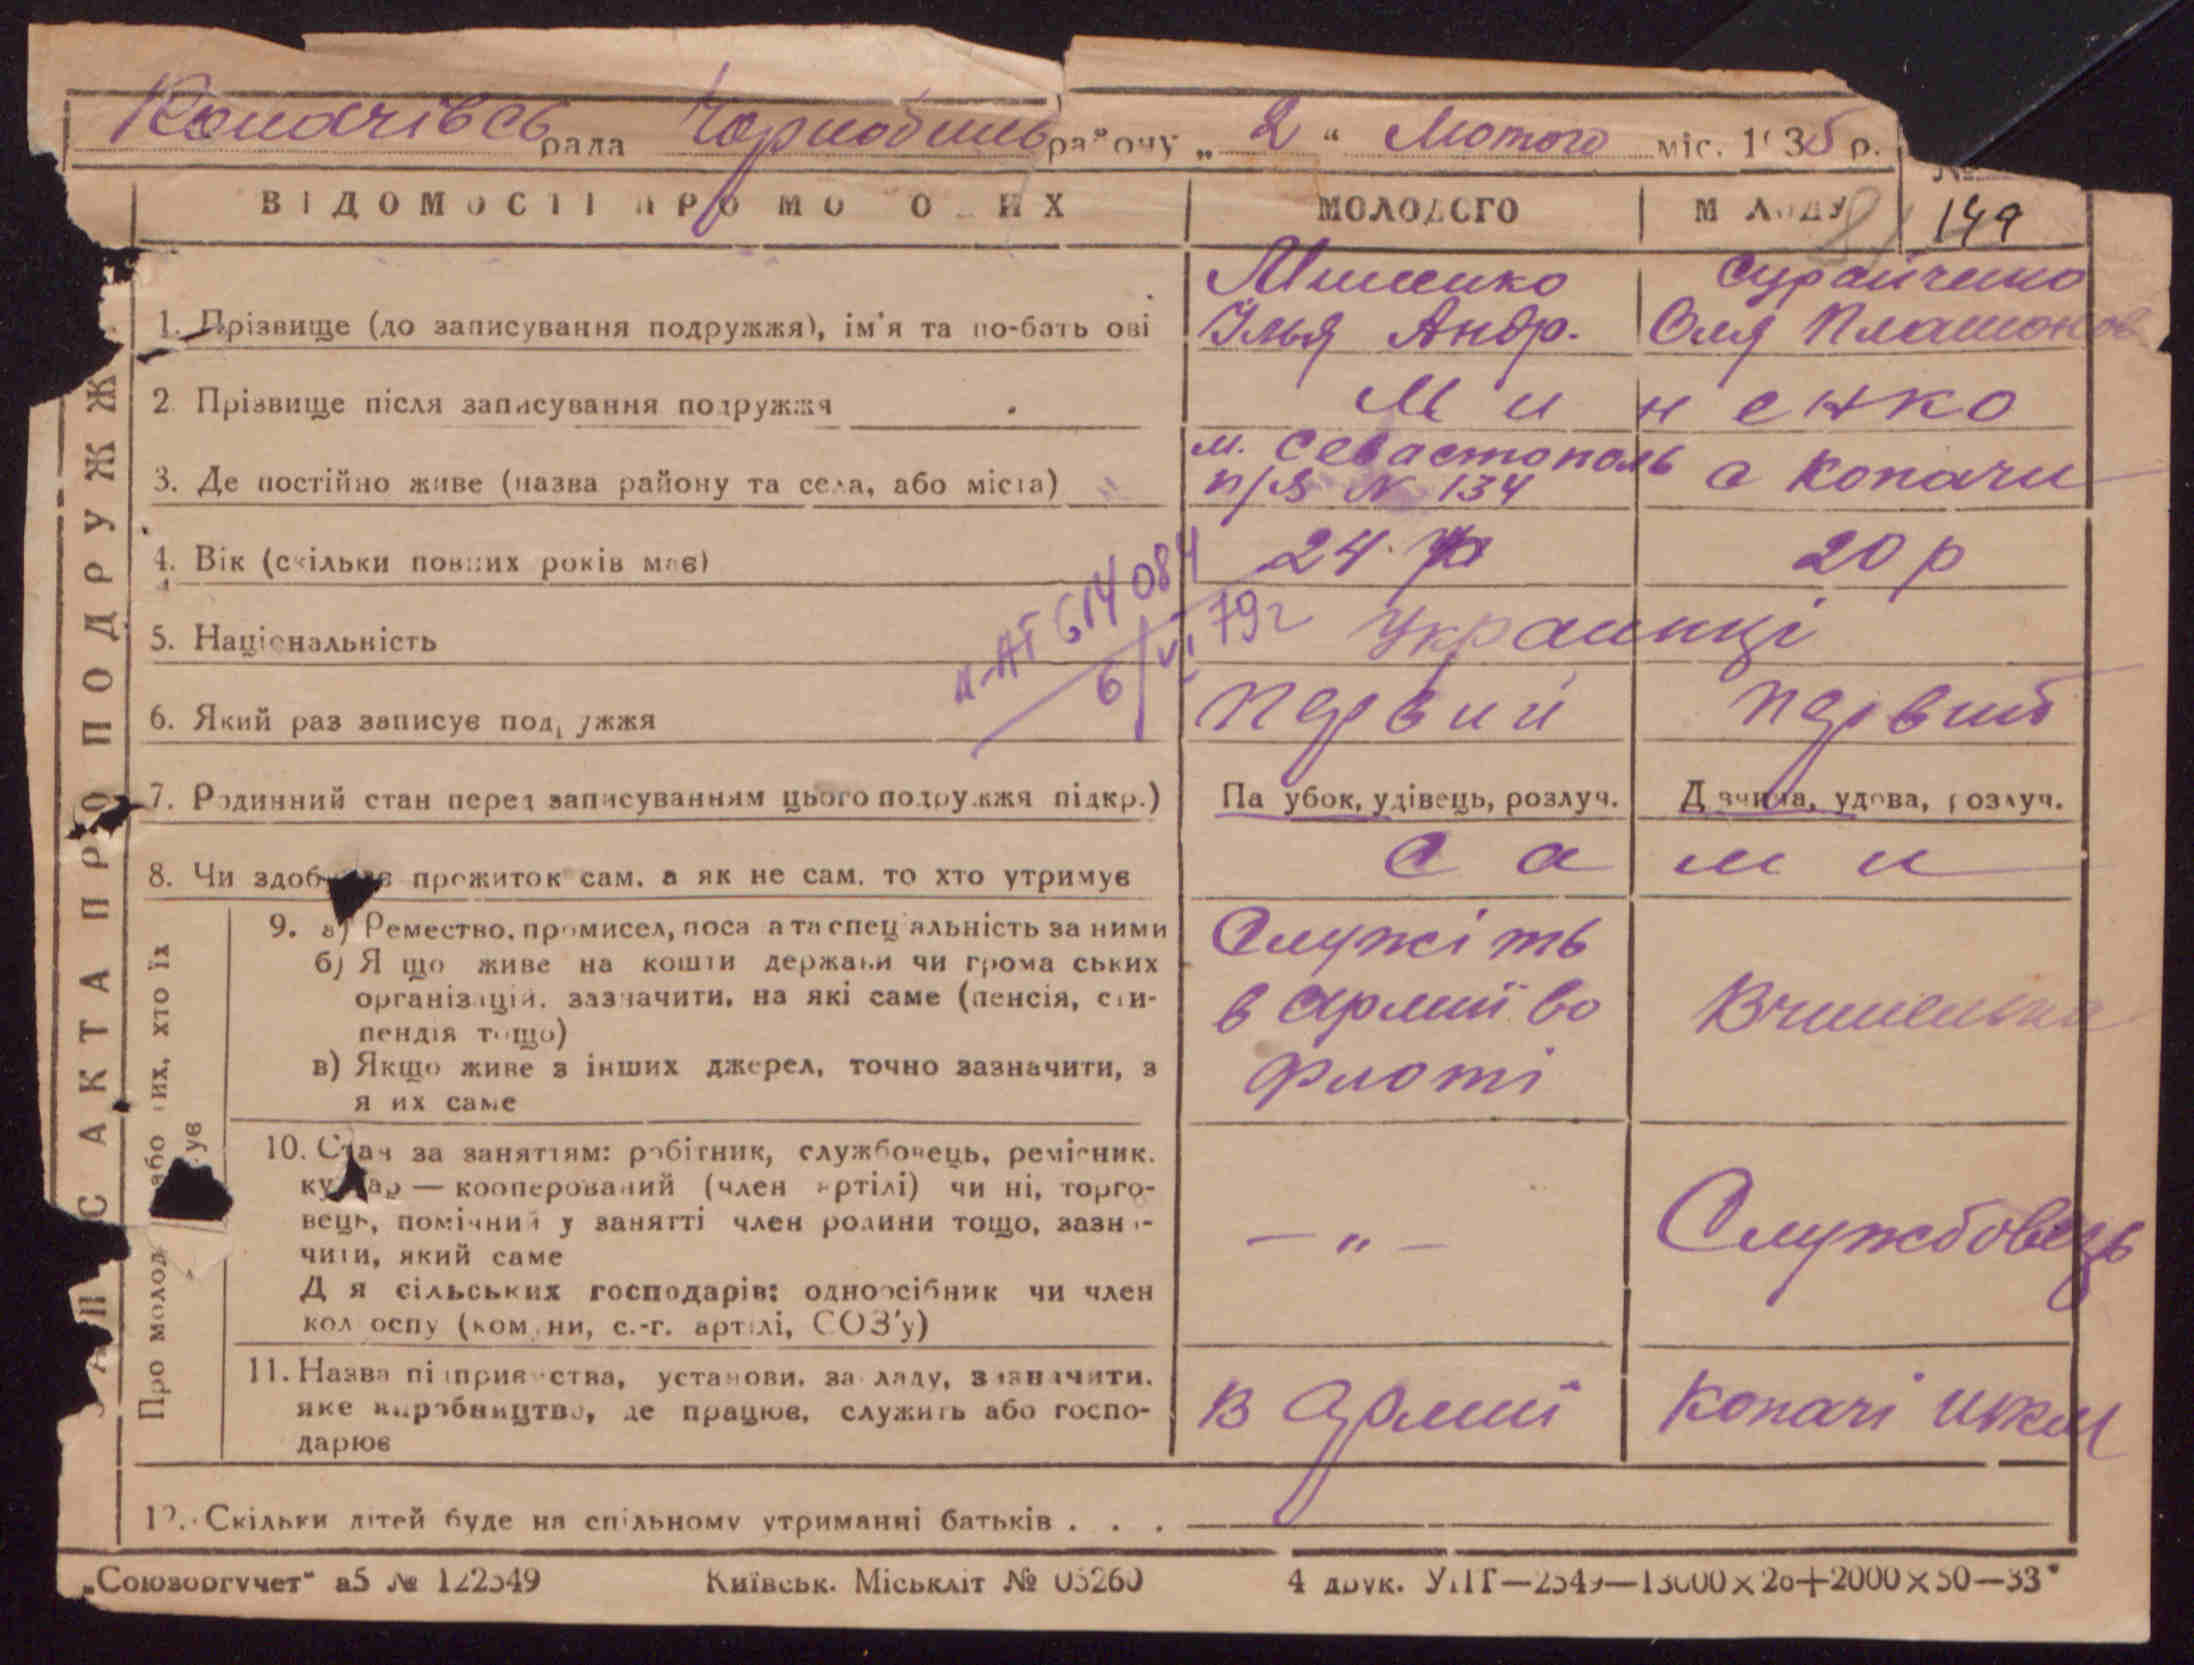 Копачівсь рада Чорнобиль району „ 2 “ Лютого міс. 1935 р.
№
149
ВІДОМОСТІ ПРО МОЛОДИХ МОЛОДОГО МОЛОДУ
ЗАПИС АКТА ПРО ПОДРУЖЖЯ
1. Прізвище (до записування подружжя), ім'я та по-батькові
Миненко Ілья Андр.
Оля Платонов
2. Прізвище після записування подружжя
Миненко
3. Де постійно живе (назва району та села, або міста)
м. Севастополь п/я № 134
с Копачи
4. Вік (скільки повних років має)
24
20 р
5. Національність
Украинці
614084
6/VI 79 г
6. Який раз записує подружжя
первий
первий
7. Родинний стан перед записуванням цього подружжя підкр.)
Парубок, удівець, розлуч.
Дівчина, удова, розлуч.
8. Чи здобуває прожиток сам, а як не сам, то хто утримує
Сами
Про молодих або їх, хто їх утримує
9. а) Ремество, промисел, посада та спеціальність за ними
б) Якщо живе на кошти держави чи громадських
організацій, зазначити, на які саме (пенсія, сти-
пендія тощо)
в) Якщо живе з інших джерел, точно зазначити, з
яких саме
Служіть
в армиї во
флоті
Вчителька
10. Стан за заняттям: робітник, службовець, ремісник,
кустар — кооперований (член артілі) чи ні, торго-
вець, помічний у занятті член родини тощо, зазна-
чити, який саме
Для сільських господарів: одноосібник чи член
колгоспу (комуни, с.-г. артілі, СОЗ'у)
— „ —
Службовець
11. Назва підприємства, установи, закладу, зазначити,
яке виробництво, де працює, служить або госпо-
дарює
в Армиї
Копачі шкм
12. Скільки дітей буде на спільному утриманні батьків . . .
„Союзоргучет“ а5 № 122549 Київськ. Міськліт № 03260 4 друк. УПГ—2549—13000×26+2000×50—33